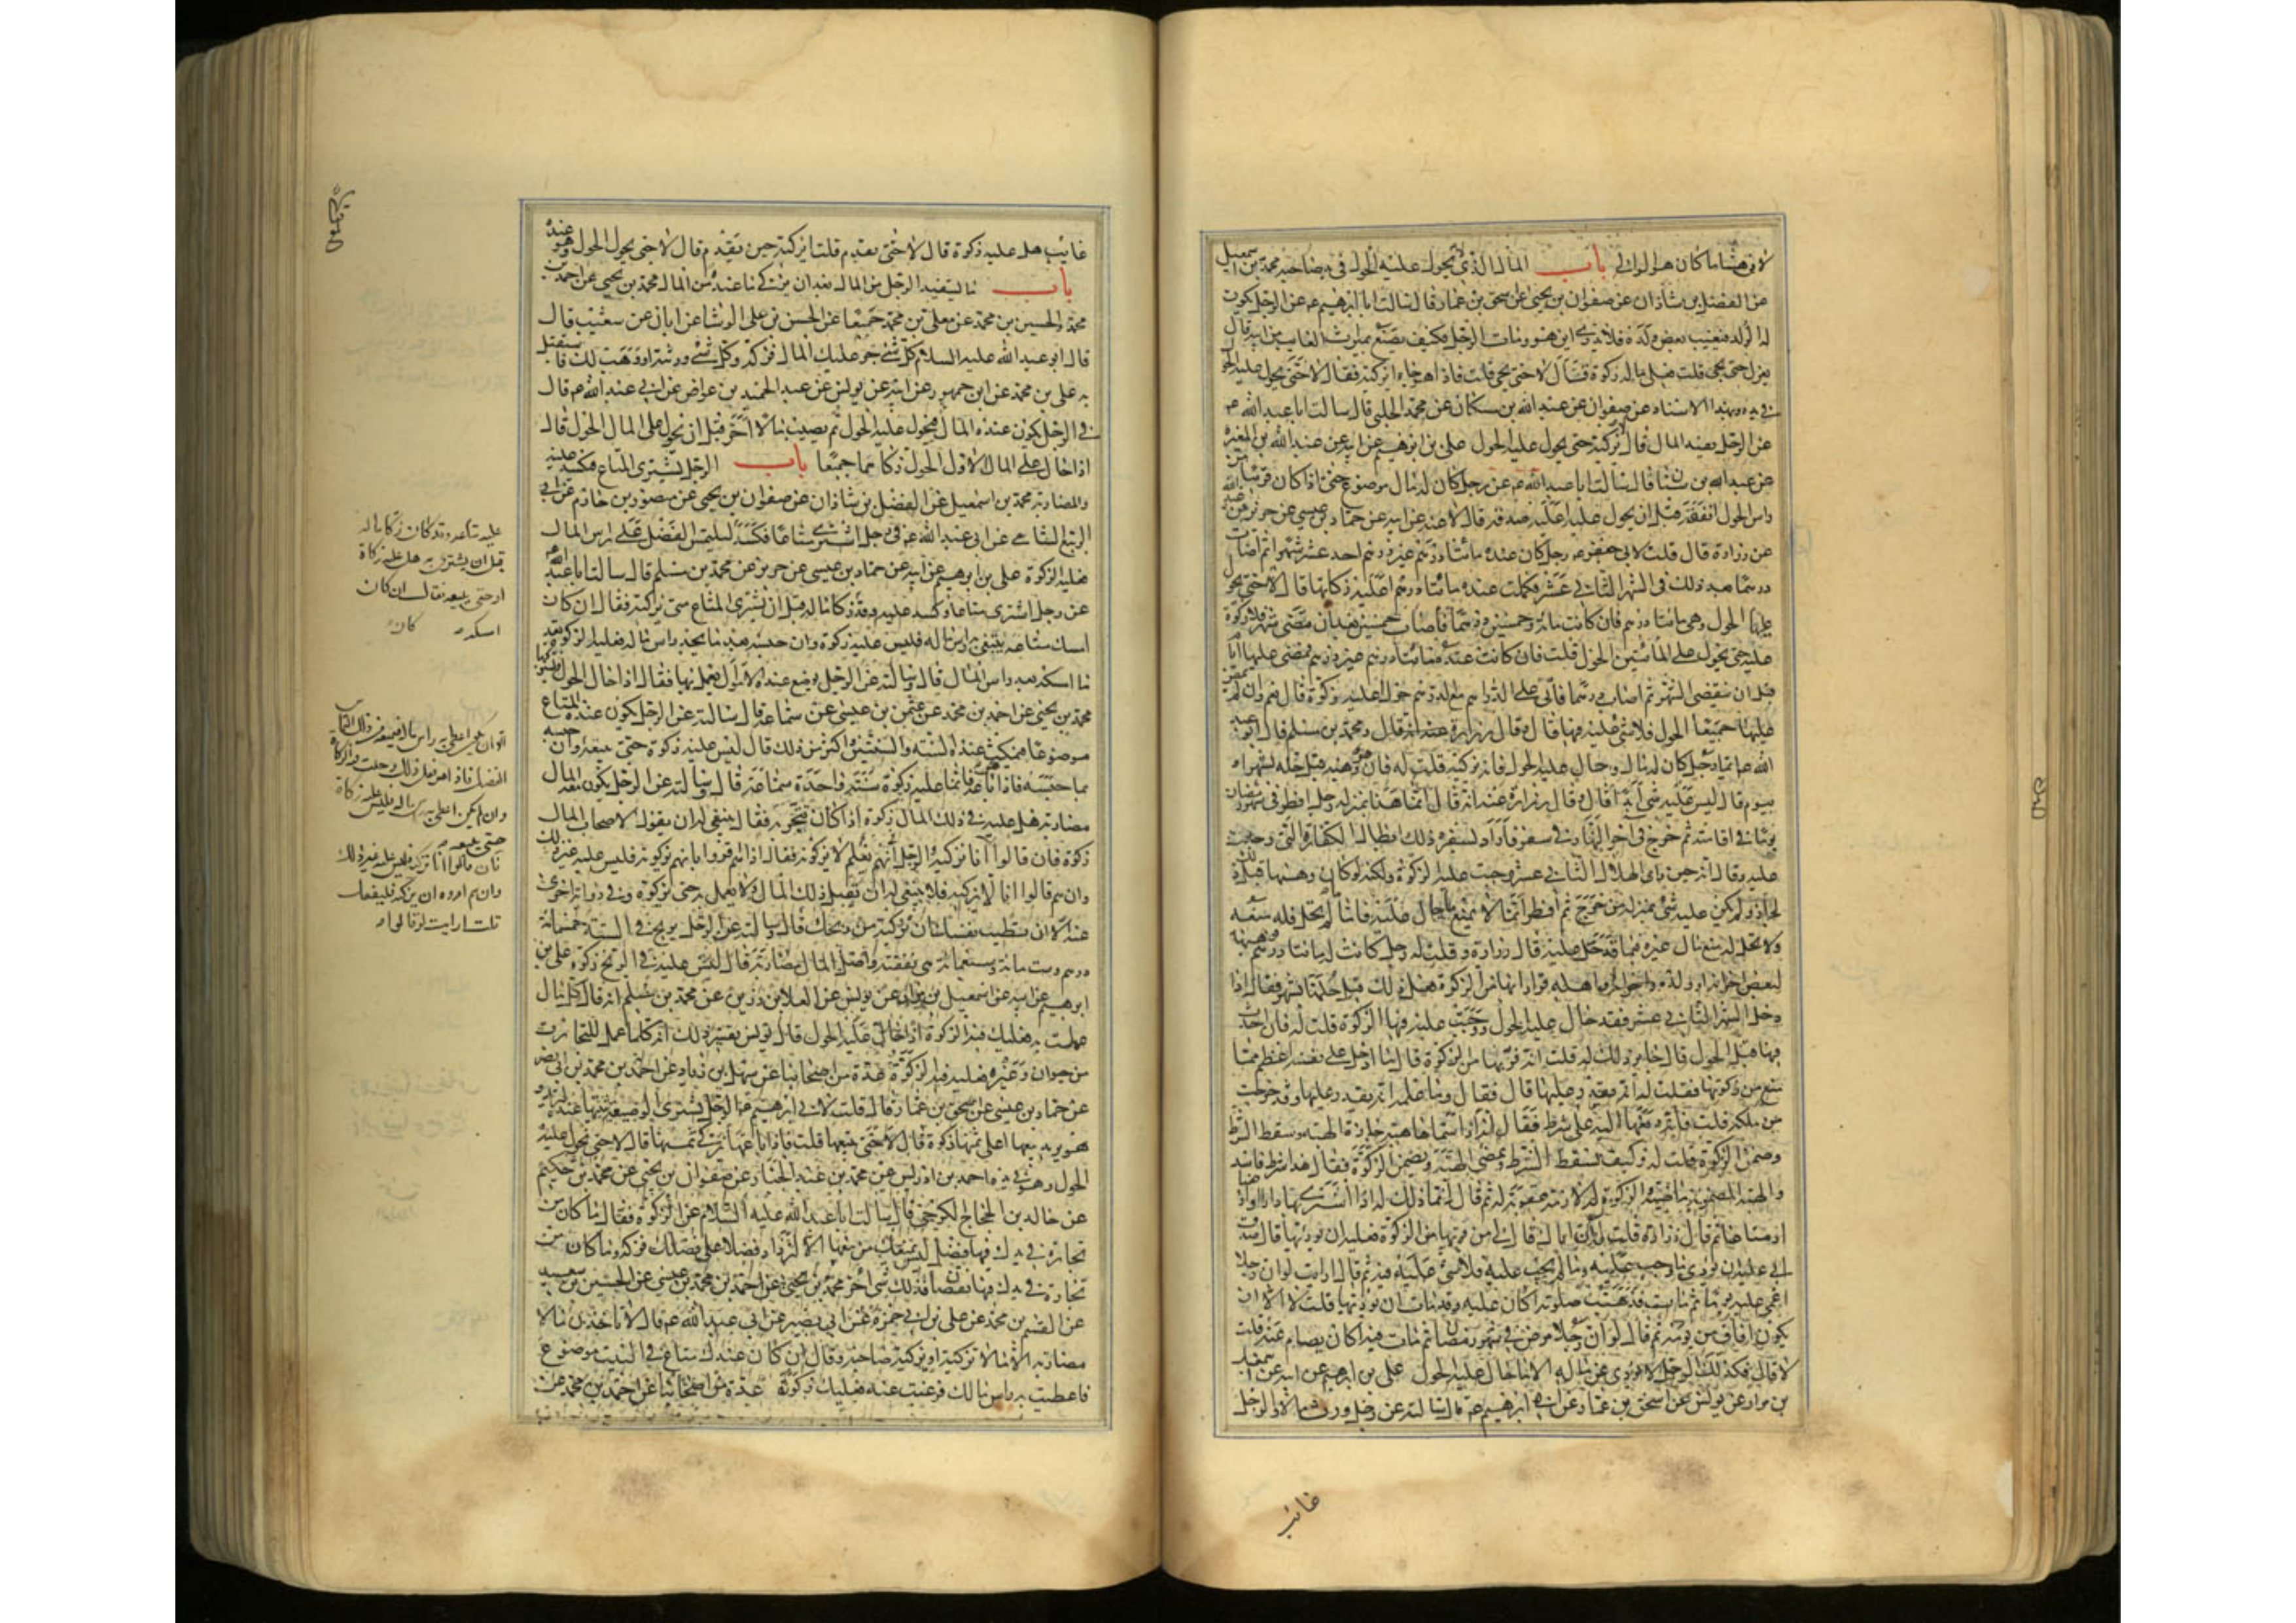 لان هشاما كان هو الوالي باب المال الذي لا يحول عليه الحول في يد صاحبه محمد بن اسمعيل
عن الفضل بن شاذان عن صفوان بن يحيى عن اسحق بن عمار قال سالت ابا ابرهيم عن الرجل يكون
له الولد فيغيب بعض ولده فلا يدري اين هو ومات الرجل فكيف يصنع بميراث الغايب من ابيه قال
يعزل حتى يجي قلت فعلى ماله زكوة فقال لا حتى يجي قلت فاذا هو جاء ايزكيه فقال لا حتى يحول عليه الحول
في يده وبهذا الاسناد عن صفوان عن عبد الله بن مسكان عن محمد الحلبي قال سالت ابا عبد الله
عن الرجل يفيد المال قال لا يزكيه حتى يحول عليه الحول على بن ابرهيم عن ابيه عن عبد الله بن المغيرة
عن عبد الله بن سنان قال سالت ابا عبد الله عن رجل كان له مال موضوع حتى اذا كان قريبا من
راس الحول انفقه قبل ان يحول عليه اعليه صدقة قال لا عنه عن ابيه عن حماد بن عيسى عن حريز
عن زرارة قال قلت لابي جعفر رجل كان عنده مائتا درهم غير درهم احد عشر شهرا ثم اصاب
درهما بعد ذلك في الشهر الثاني عشر فكملت عنده مائتا درهم اعليه زكاتها قال لا حتى يحول
عليها الحول وهي مائتا درهم فان كانت مائة وخمسين درهما فاصاب خمسين بعد ان مضى شهر فلا زكوة
عليه حتى يحول على المائتين الحول قلت فان كانت عنده مائتا درهم غير درهم فمضى عليها ايام
قبل ان ينقضي الشهر ثم اصاب درهما فاتى على الدراهم مع الدرهم حول اعليه زكوة قال نعم وان لم يمض
عليها جميعا الحول فلا شي عليه فيها قال وقال زرارة عنه انه قال ومحمد بن مسلم قال ابو عبد
الله ايما رجل كان له مال وحال عليه الحول فانه يزكيه قلت له فان وهبه قبل حله بشهر او
بيوم قال ليس عليه شي ابدا قال وقال زرارة عنه انه قال انما هذا بمنزلة رجل افطر في شهر رمضان
يوما في اقامته ثم خرج في اخر النهار في سفر فاراد بسفره ذلك ابطال الكفارة التي وجبت
عليه وقال انه حين راى الهلال الثاني عشر وجبت عليه الزكوة ولكنه لو كان وهبها قبل ذلك
لجاز ولم يكن عليه شي بمنزلة من خرج ثم افطر انما لا يمنع ما حال عليه فاما ما لم يحل فله منعه
ولا يحل له منع مال غيره فيما قد حل عليه قال زرارة وقلت له رجل كانت له مائتا درهم فوهبها
لبعض اخوانه او ولده او اهله فرارا بها من الزكوة فعل ذلك قبل حلها بشهر فقال اذا
دخل الشهر الثاني عشر فقد حال عليه الحول ووجبت عليه فيها الزكوة قلت له فان احدث
فيها قبل الحول قال جايز ذلك له قلت انه فر بها من الزكوة قال ما ادخل على نفسه اعظم مما
منع من زكوتها فقلت له انه يقدر عليها قال فقال وما علمه انه يقدر عليها وقد خرجت
من ملكه قلت فانه دفعها اليه على شرط فقال انه اذا سماها هبة جازت الهبة وسقط الشرط
وضمن الزكوة قلت له وكيف يسقط الشرط وتمضي الهبة ويضمن الزكوة فقال هذا شرط فاسد
والهبة المضمونة ماضية والزكوة له لازمة عقوبة له ثم قال انما ذلك له اذا اشترى بها دارا او
ارضا او متاعا ثم قال زرارة قلت له ان اباك قال لي من فر بها من الزكوة فعليه ان يؤديها قال صدق
ابي عليه ان يؤدي ما وجب عليه وما لم يجب عليه فلا شي عليه فيه ثم قال ارايت لو ان رجلا
اغمي عليه يوما ثم مات فذهبت صلوته اكان عليه وقد مات ان يؤديها قلت لا الا ان
يكون افاق من يومه ثم قال لو ان رجلا مرض في شهر رمضان ثم مات فيه اكان يصام عنه قلت
لا قال فكذلك الرجل لا يؤدي عن ماله الا ما حال عليه الحول على بن ابرهيم عن ابيه عن اسمعيل
بن مرار عن يونس عن اسحق بن عمار عن ابي ابرهيم قال سالته عن رجل ورث مالا والرجل
غائب
غائب هل عليه زكوة قال لا حتى يقدم قلت ايزكيه حين يقدم قال لا حتى يحول الحول وهو عنده
باب ما يستفيد الرجل من المال بعد ان يزكي ما عنده من المال محمد بن يحيى عن احمد بن
محمد والحسين بن محمد عن معلى بن محمد جميعا عن الحسن بن على الوشا عن ابان عن شعيب قال
قال ابو عبد الله عليه السلام كل شي جر عليك المال فزكه وكل شي ورثته او وهب لك فاستقبل
به على بن محمد عن ابن جمهور عن ابيه عن يونس عن عبد الحميد بن عواض عن ابي عبد الله قال
في الرجل يكون عنده المال فيحول عليه الحول ثم يصيب مالا آخر قبل ان يحول على المال الحول قال
اذا حال على المال الاول الحول زكاهما جميعا باب الرجل يشتري المتاع فيكسد عليه
والمضاربة محمد بن اسمعيل عن الفضل بن شاذان عن صفوان بن يحيى عن منصور بن حازم عن ابي
الربيع الشامي عن ابي عبد الله في رجل اشترى متاعا فكسد
فعليه الزكوة على بن ابرهيم عن ابيه عن حماد بن عيسى عن حريز عن محمد بن مسلم قال سالت ابا عبد الله
عن رجل اشترى متاعا وكسد عليه وقد زكا ماله قبل ان يشتري المتاع متى يزكيه فقال ان كان
امسك متاعه يبتغي به راس ماله فليس عليه زكوة وان حبسه بعد ما يجد راس ماله فعليه الزكوة بعد
ما امسكه بعد راس المال قال وسالته عن الرجل يوضع عنده الاموال يعمل بها فقال اذا حال الحول فليزكها
محمد بن يحيى عن احمد بن محمد عن عثمن بن عيسى عن سماعة قال سالته عن الرجل يكون عنده المتاع
موضوعا فيمكث عنده السنة والسنتين واكثر من ذلك قال ليس عليه زكوة حتى يبيعه وان
حبسه فاذا باعه فانما عليه زكوة سنة واحدة سماعة قال وسالته عن الرجل يكون معه المال
مضاربة هل عليه في ذلك المال زكوة اذا كان يتجر به فقال ينبغي له ان يقول لاصحاب المال
زكوه فان قالوا انا نزكيه
وان هم قالوا انا لا نزكيه فلا ينبغي له ان يقبل ذلك المال ولا يعمل به حتى يزكوه وفي رواية اخرى
عنه الا ان تطيب نفسك ان تزكيه من ربحك قال وسالته عن الرجل يربح في السنة خمسمائة
درهم وستمائة وسبعمائة هي نفقته واصل المال مضاربة قال ليس عليه في الربح زكوة على بن
ابرهيم عن ابيه عن اسمعيل بن مرار عن يونس عن العلا بن رزين عن محمد بن مسلم انه قال كل مال
عملت به فعليك فيه الزكوة اذا حال عليه الحول قال يونس تفسير ذلك انه كلما عمل للتجارة
من حيوان وغيره فعليه فيه الزكوة عدة من اصحابنا عن سهل بن زياد عن احمد بن محمد بن ابي نصر
عن حماد بن عيسى عن اسحق بن عمار قال قلت لابي ابرهيم الرجل يشتري الوصيفة يثبتها عنده لتزيد
وهو يريد بيعها اعلى ثمنها زكوة قال لا حتى يبيعها قلت فاذا باعها يزكي ثمنها قال لا حتى يحول عليه
الحول وهو في يده احمد بن ادريس عن محمد بن عبد الجبار عن صفوان بن يحيى عن محمد بن حكيم
عن خالد بن الحجاج الكرخي قال سالت ابا عبد الله عليه السلام عن الزكوة فقال ما كان من
تجارة في يدك فيها فضل ليس يمنعك من بيعها الا لتزداد فضلا على فضلك فزكه وما كان من
تجارة في يدك فيها نقصان فذلك شي آخر محمد بن يحيى عن احمد بن محمد بن عيسى عن الحسين بن سعيد
عن القسم بن محمد عن على بن ابي حمزة عن ابي بصير عن ابي عبد الله قال لا تاخذن مالا
مضاربة الا مالا تزكيه او يزكيه صاحبه وقال ان كان عندك متاع في البيت موضوع
فاعطيت به راس مالك فرغبت عنه فعليك زكوته عدة من اصحابنا عن احمد بن محمد عن
عليه متاعه وقد كان زكا ماله
قبل ان يشترى به هل عليه زكاة
او حتى يبيعه فقال ان كان
امسكه
وان لم يكن اعطى به راس ماله فليس عليه زكاة
حتى يبيعه